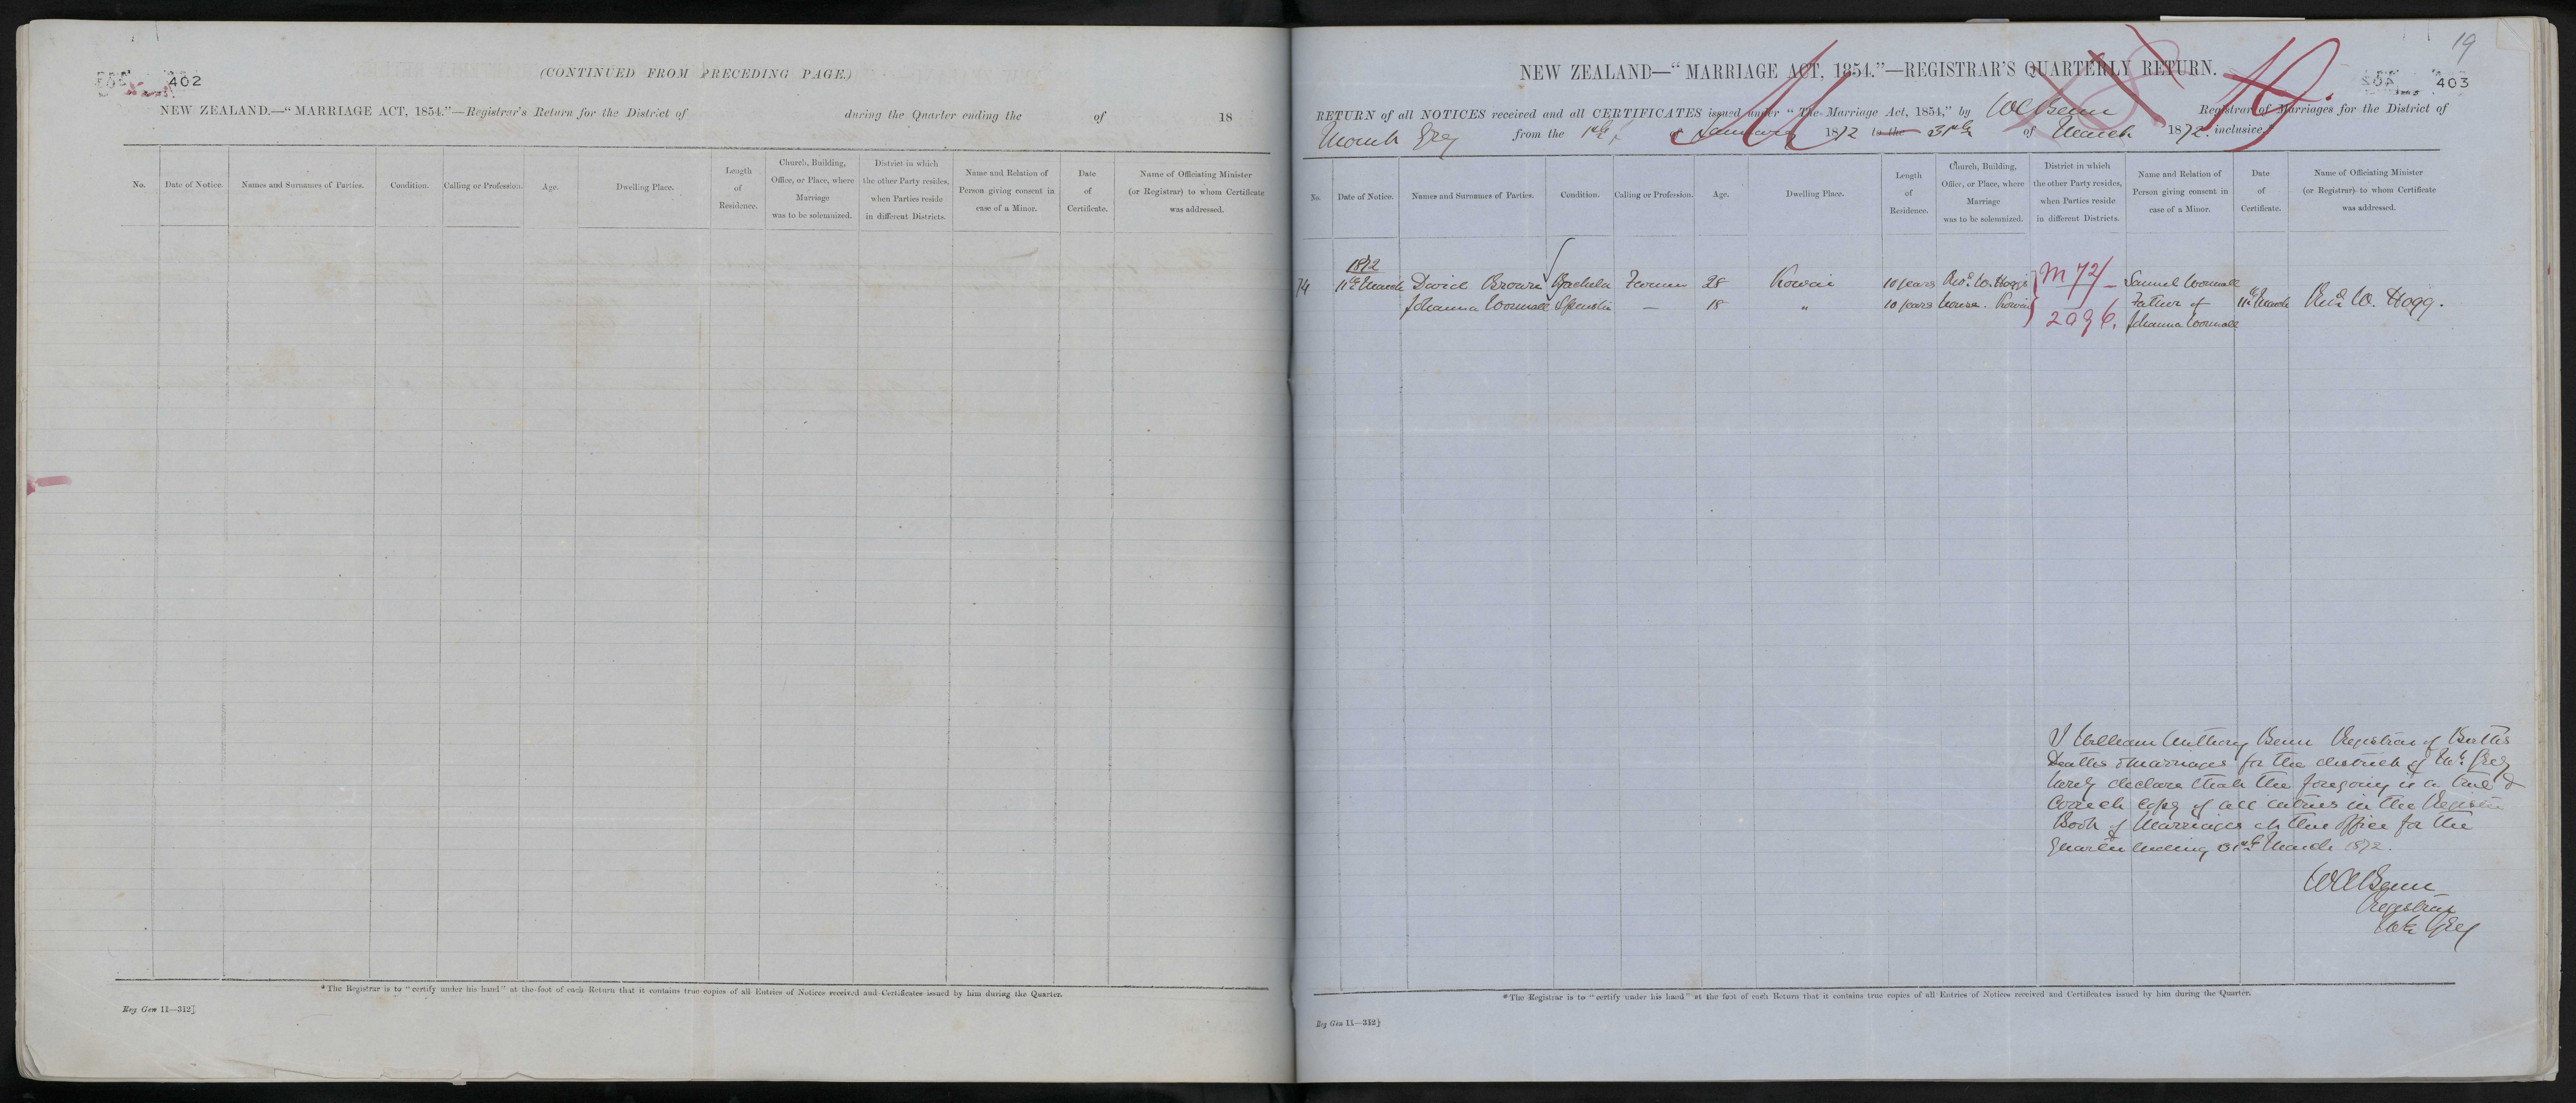 402
(CONTINUED FROM PRECEDING PAGE.)
NEW ZEALAND.—“MARRIAGE ACT, 1854.”—Registrar's Return for the District of during the Quarter ending the of 18
No. Date of Notice. Names and Surnames of Parties. Condition. Calling or Profession. Age. Dwelling Place. Length of Residence. Church, Building, Office, or Place, where Marriage was to be solemnized. District in which the other Party resides, when Parties reside in different Districts. Name and Relation of Person giving consent in case of a Minor. Date of Certificate. Name of Officiating Minister (or Registrar) to whom Certificate was addressed.
*The Registrar is to “certify under his hand” at the foot of each Return that it contains true copies of all Entries of Notices received and Certificates issued by him during the Quarter.
Reg Gen 11—312]
19
403
NEW ZEALAND—“MARRIAGE ACT, 1854.”—REGISTRAR'S QUARTERLY RETURN.
RETURN of all NOTICES received and all CERTIFICATES issued under “The Marriage Act, 1854,” by WA Benn Registrar of Marriages for the District of
Mount Grey from the 1st of January 1872 to the 31st of March 1872 inclusive.
No. Date of Notice. Names and Surnames of Parties. Condition. Calling or Profession. Age. Dwelling Place. Length of Residence. Church, Building, Office, or Place, where Marriage was to be solemnized. District in which the other Party resides, when Parties reside in different Districts. Name and Relation of Person giving consent in case of a Minor. Date of Certificate. Name of Officiating Minister (or Registrar) to whom Certificate was addressed.
1872
74 11th March David Brown Bachelor Farmer 28 Kowai 10 years Revd. W. Hoggs M 72/ Samuel Wornall
Johanna Wornall Spinster — 18 " 10 years house. Kowai Father of 11th March Revd W. Hogg.
2096. Johanna Wornall
I William Anthony Benn Registrar of Births
Deaths & Marriages for the district of Mt. Grey
hereby declare that the foregoing is a true &
Correct copy of all entries in the Register
Book of Marriages at this office for the
Quarter ending 31st March 1872.
WABenn
Registrar
Mt Grey
*The Registrar is to “certify under his hand” at the foot of each Return that it contains true copies of all Entries of Notices received and Certificates issued by him during the Quarter.
Reg Gen 11—312]